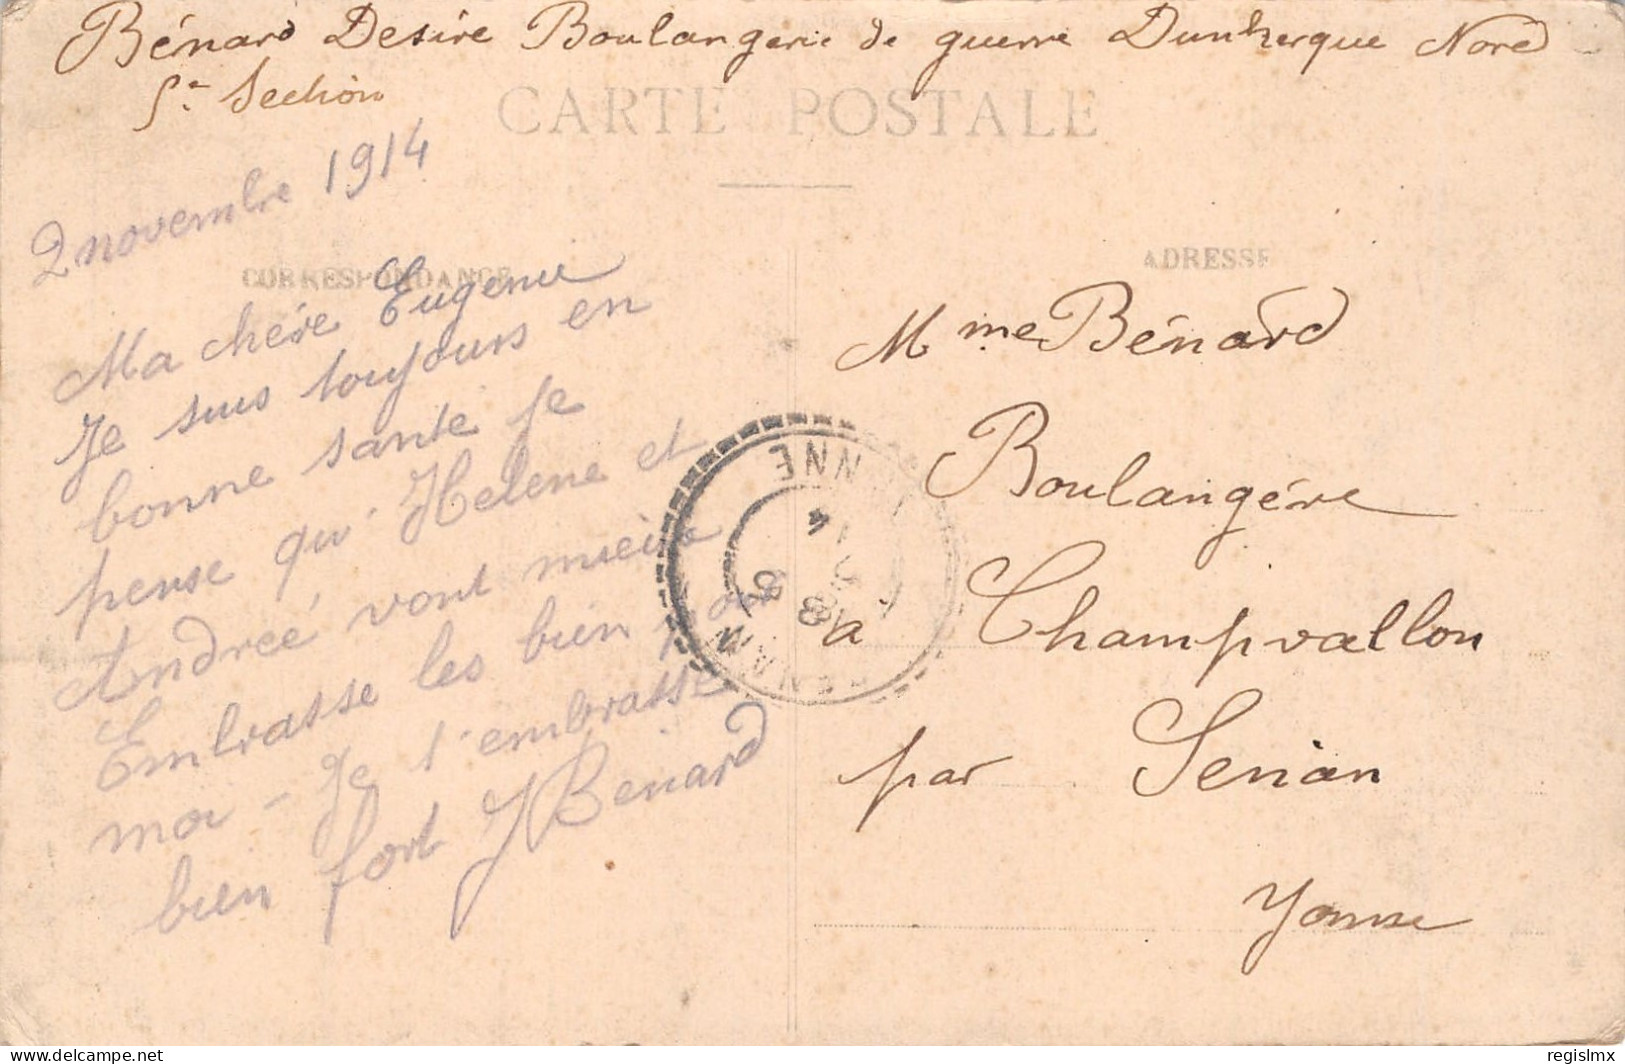 Bénard Desire Boulangerie de guerre Dunkerque Nord
Section
CARTE POSTALE
2 novembre 1914
CORRESPONDANCE
Ma chére Eugenie
Je suis toujours en
bonne santé je
pense qu' Helene et
Andreé vont mieux
Embrasse les bien pour
moi - Je t'embrasse
bien fort JBenard
ADRESSE
Mme Bénard
Boulangére
a Champvallon
par Senan
Yonne
delcampe.net
regislmx